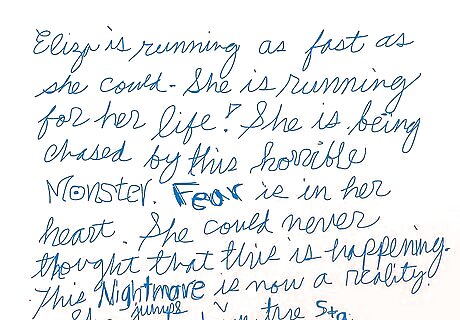 Eliza is running as fast as
she could. She is running
for her life! She is being
chased by this horrible
Monster. Fear is in her
heart. She could never
thought that this is happening.
This Nightmare is now a reality!
jumps
She in the Sta